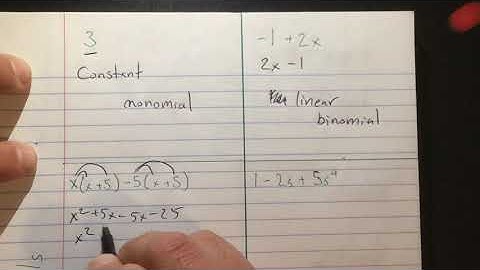 3
Constant
monomial
-1 + 2x
2x - 1
linear
binomial
x(x+5) -5(x+5)
x² + 5x - 5x - 25
x²
1 - 2s + 5s⁴